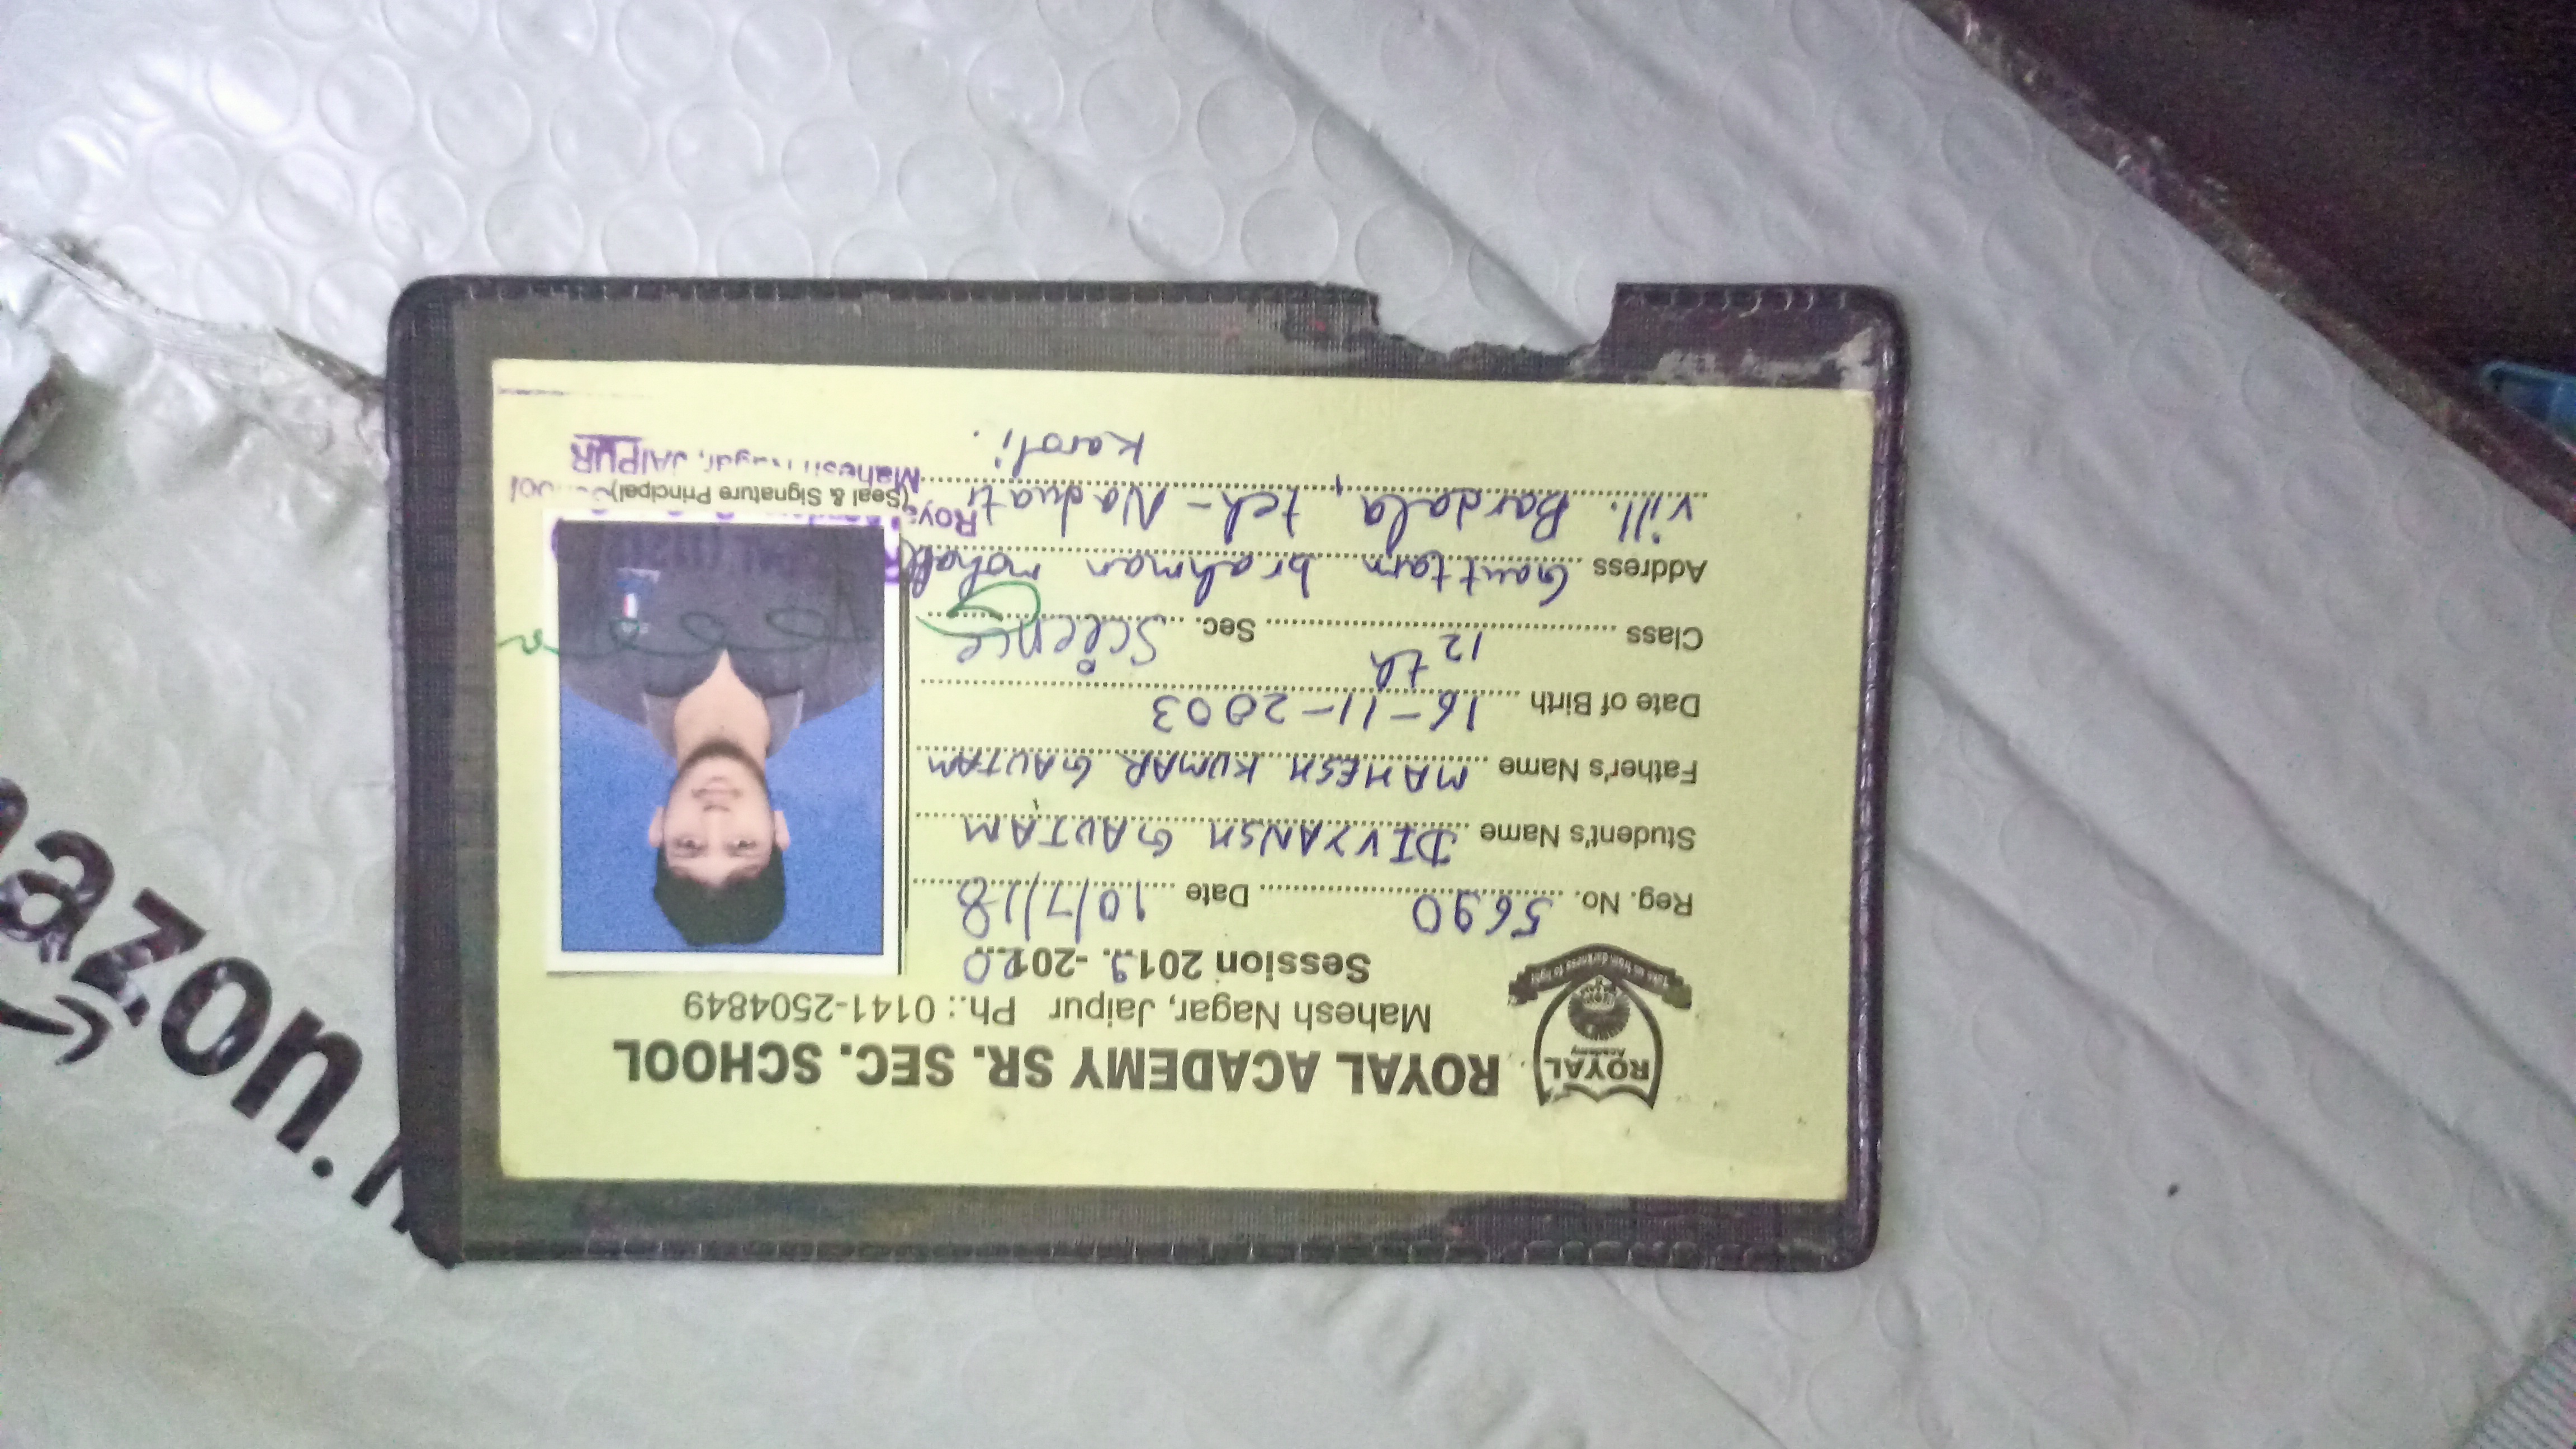 ROYAL
Academy
Take us from darkness to light
ROYAL ACADEMY SR. SEC. SCHOOL
Mahesh Nagar, Jaipur Ph.: 0141-2504849
Session 2019. -2020
Reg. No. 5690 Date 10/7/18
Student's Name DIVYANSH GAUTAM
Father's Name MAHESH KUMAR GAUTAM
Date of Birth 16-11-2003
Class 12th Sec. Science
Address Gauttam brahman
vill. Bardala, teh- Naduati
Karoli.
(Seal & Signature Principal)
Mahesh Nagar, JAIPUR
azon.